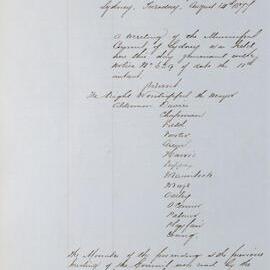 Sydney, Tuesday, August 14th
A Meeting of the Municipal
Council of Sydney was held
here this day pursuant with
Notice No of date the 11th
instant.
Present
The Right Worshipful the Mayor
Aldermen Davies
Chapman
Field
Foster
Green
Harris
Meeks
O'Connor
Palmer
Playfair
Young
The Minutes of the proceedings at the previous
meeting of the Council were read by the